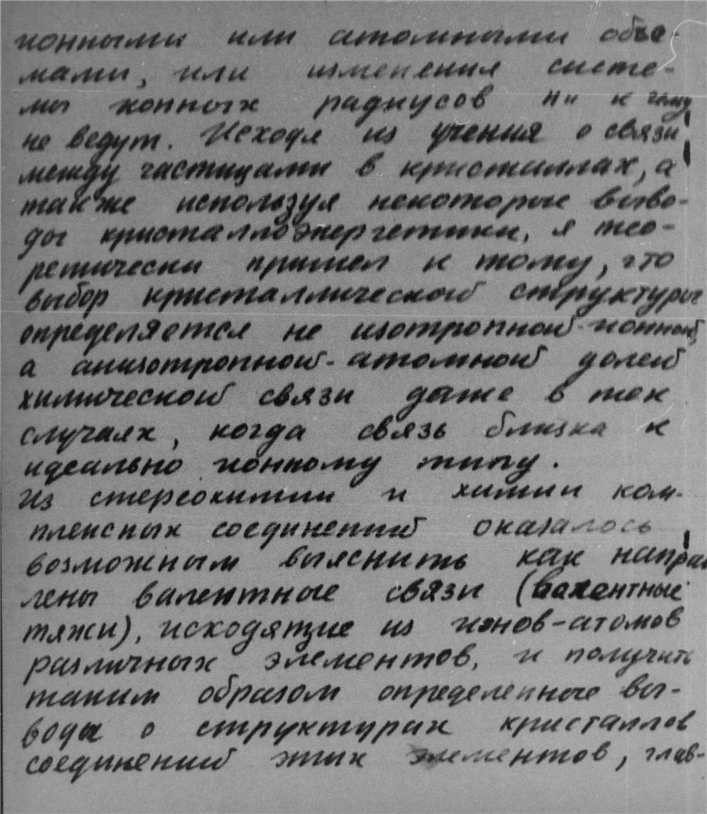 ионными или атомными объе-
мами, или изменения систе-
мы ионных радиусов ни к чему
не ведут. Исходя из учения о связи
между частицами в кристаллах, а
также используя некоторые выво-
ды кристаллоэнергетики, я тео-
ретически пришел к тому, что
выбор кристаллической структуры
определяется не изотропной-ионной,
а анизотропной-атомной долей
химической связи даже в тех
случаях, когда связь близка к
идеально ионному типу.
Из стереохимии и химии ком-
плексных соединений оказалось
возможным выяснить как направ
лены валентные связи (валентные
тяжи), исходящие из ионов-атомов
различных элементов, и получить
таким образом определенные вы-
воды о структурах кристаллов
соединений этих элементов, глав-